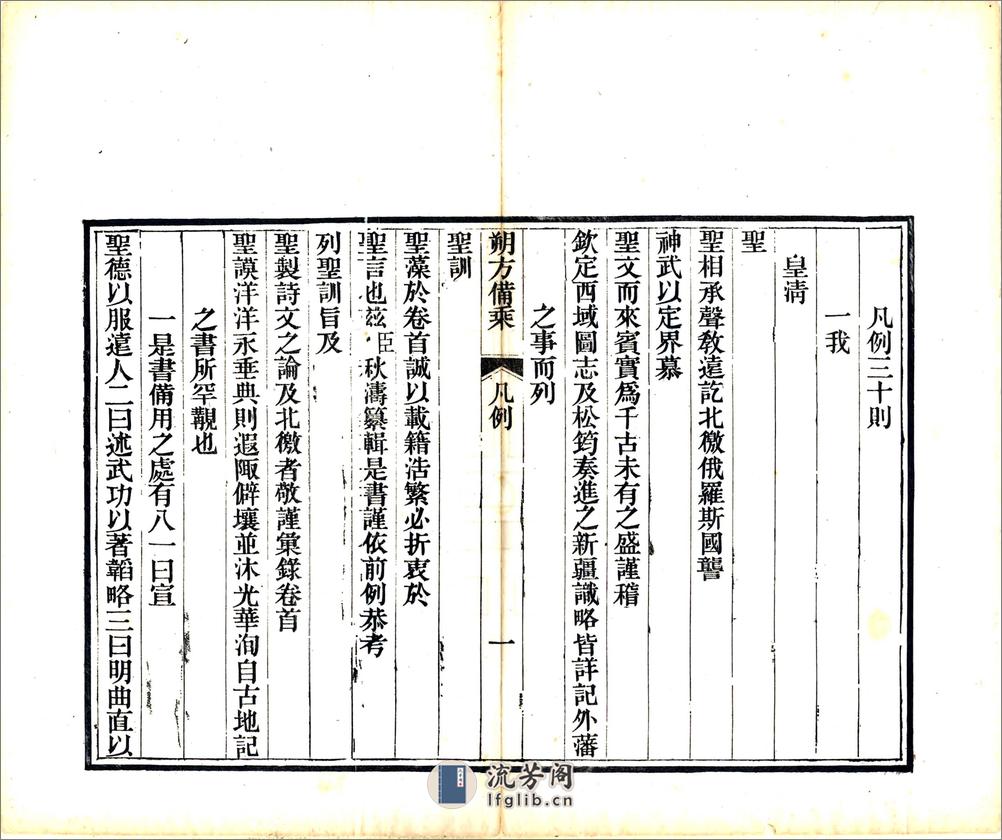 凡例三十則
一我
皇清
聖
聖相承聲敎遠訖北徼俄羅斯國讋
神武以定界慕
聖文而來賓實爲千古未有之盛謹稽
欽定西域圖志及松筠奏進之新疆識略皆詳記外藩
之事而列
朔方備乘
凡例
一
聖訓
聖藻於卷首誠以載籍浩繁必折衷於
聖言也玆臣秋濤纂輯是書謹依前例恭考
列聖訓旨及
聖製詩文之論及北徼者敬謹彙錄卷首
聖謨洋洋永垂典則遐陬僻壤並沐光華洵自古地記
之書所罕覯也
一是書備用之處有八一曰宣
聖德以服遠人二曰述武功以著韜略三曰明曲直以
流芳阁
lfglib.cn